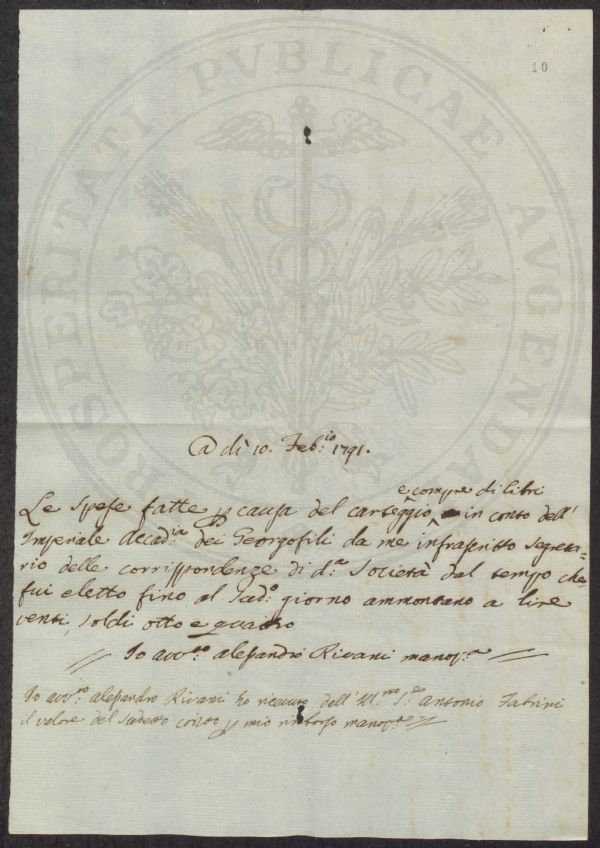 10
PROSPERITATI PVBLICAE AVGENDAE
@ dì 10. Feb.io 1791.
e compre di libri
Le spese fatte p causa del carteggio in conto dell'
Imperiale Accad.ia dei Georgofili da me infrascritto segreta=
rio delle corrispondenze di d.a Società dal tempo che
fui eletto fino al sud.o giorno ammontano a lire
venti, soldi otto e quattro
Io avv.to Alessandro Rivani manop.a
Io avv.to Alessandro Rivani ho ricevuto dall' Ill.mo S.e Antonio Fabrini
il valore del sudetto conto p mio rimborso manop.a